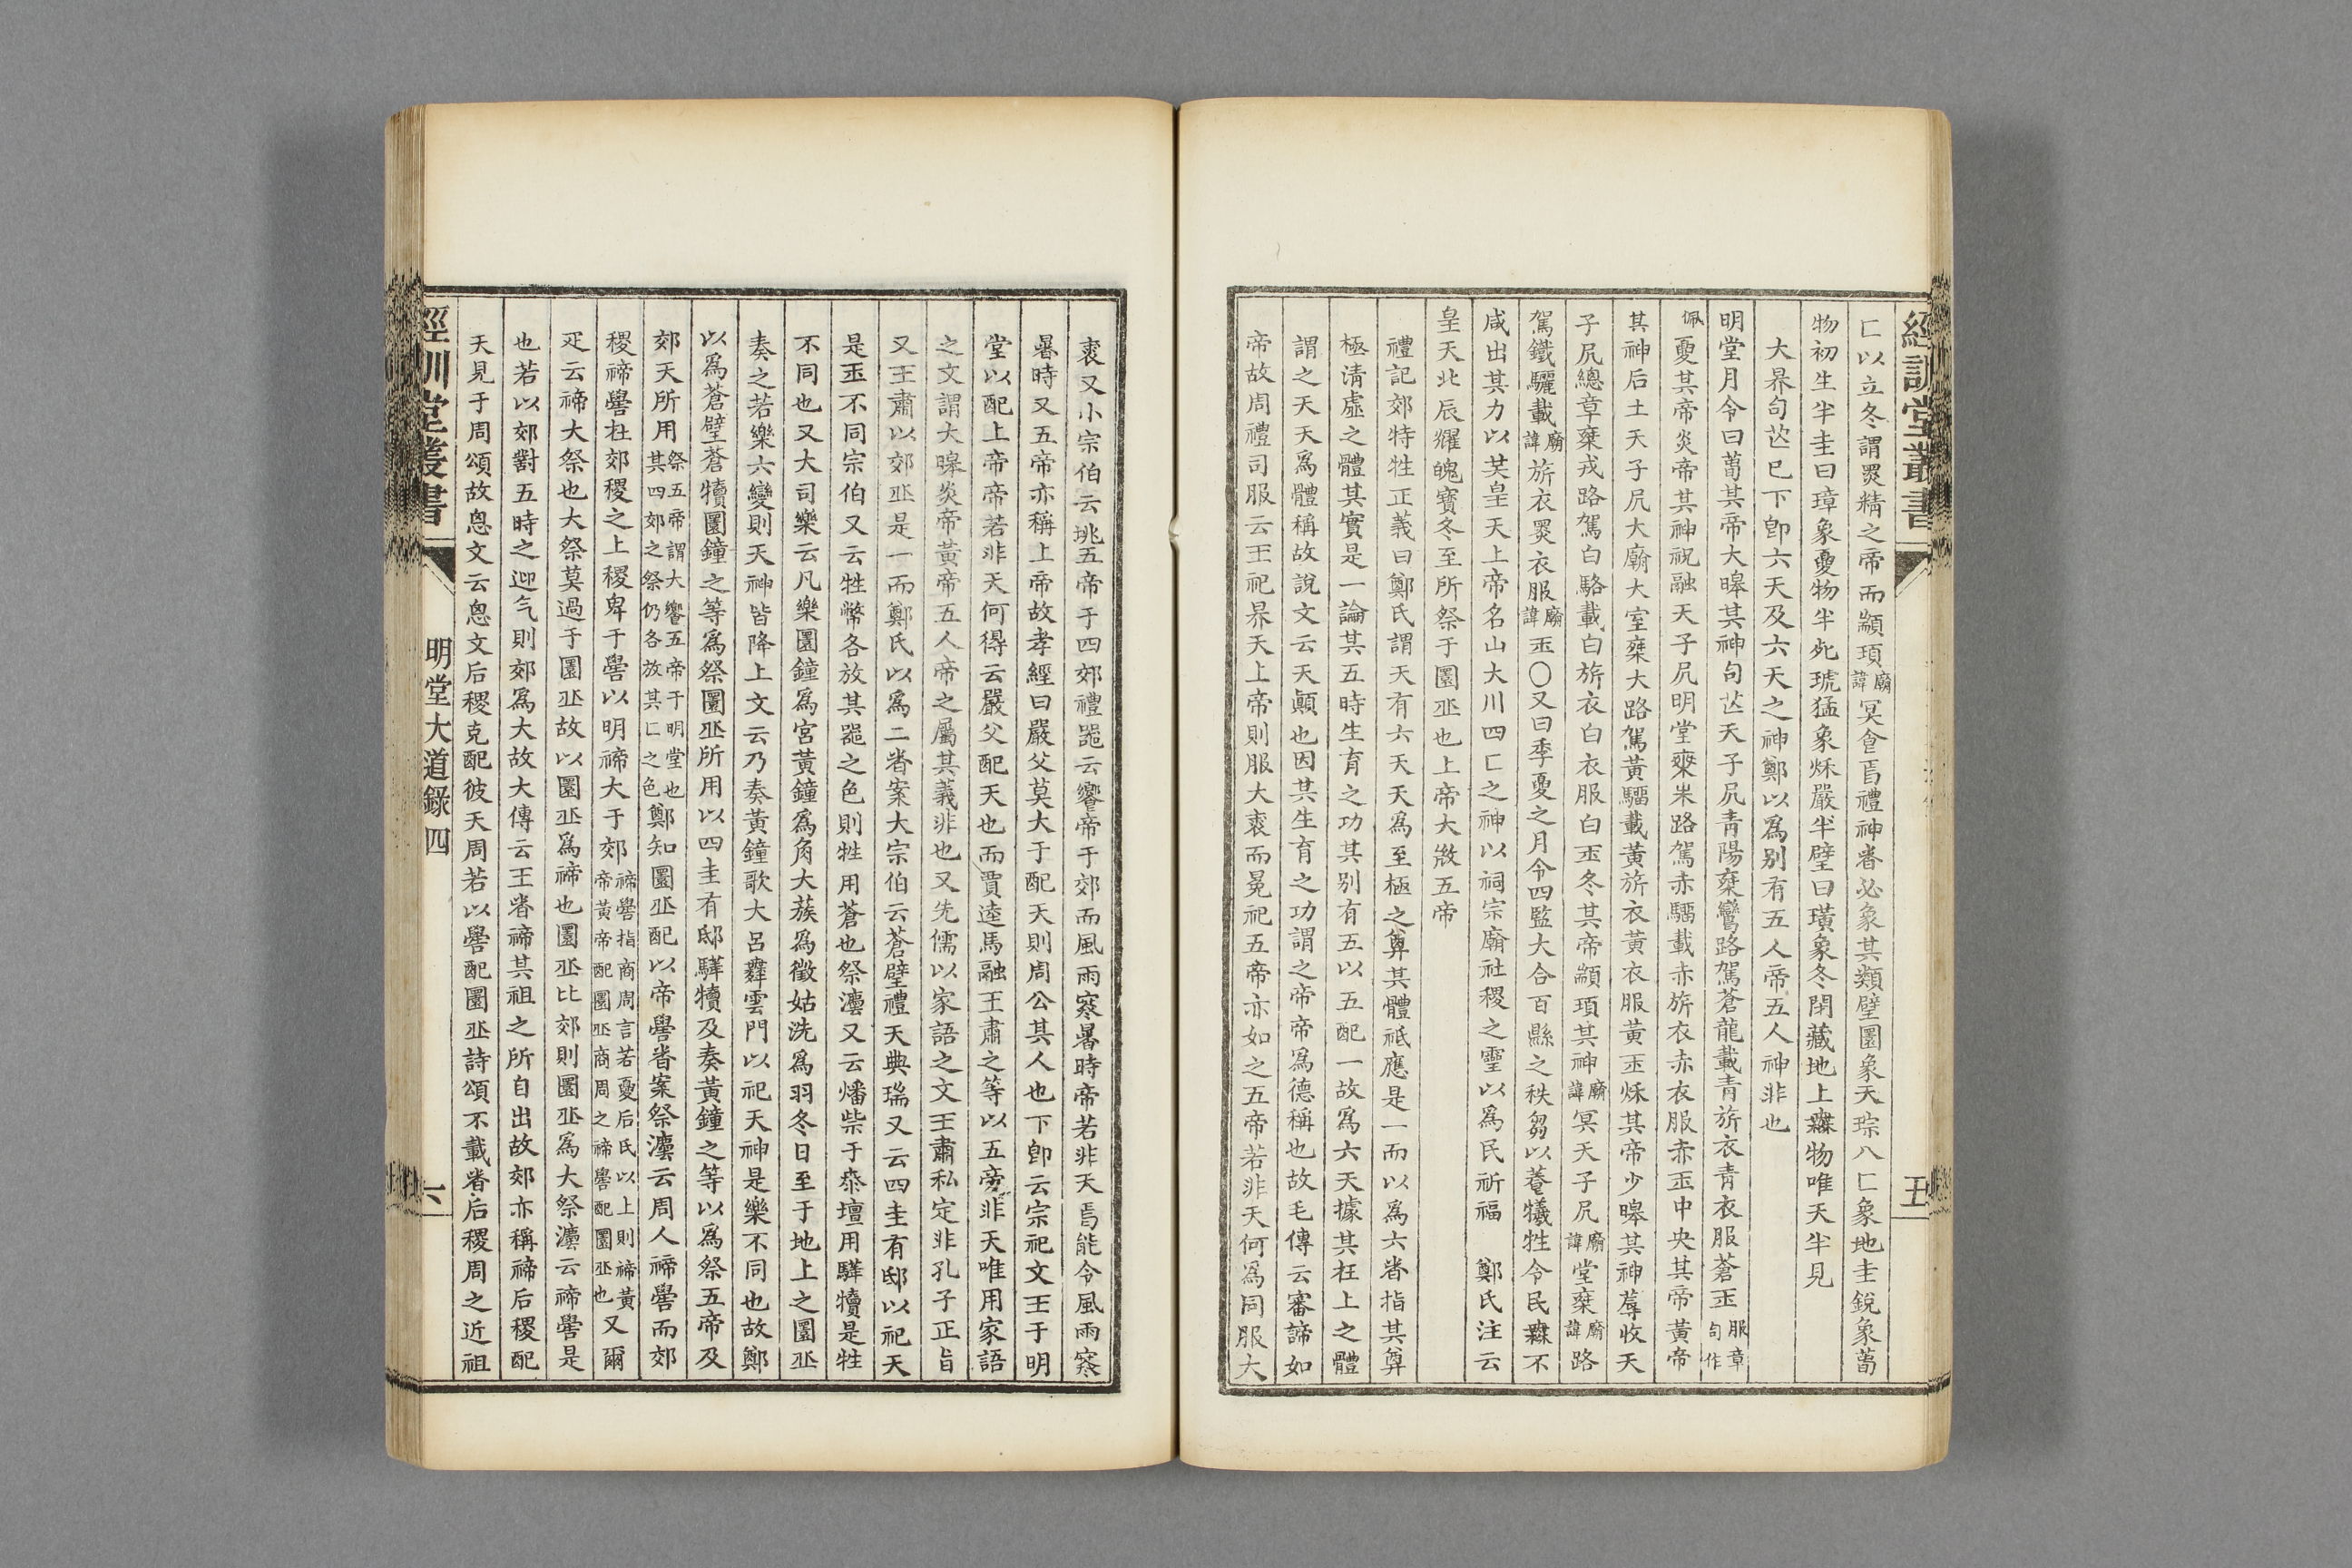 經訓堂叢書
五
匚以立冬謂㒼精之帝而顓頊廟諱冥食焉禮神者必象其類璧圜象天琮八匚象地圭銳象萅
物初生半圭曰璋象夏物半死琥猛象秌嚴半璧曰璜象冬閉藏地上無物唯天半見
大昦句芒巳下卽六天及六天之神鄭以為別有五人帝五人神非也
明堂月令曰萅其帝大皞其神句芒天子凥青陽椉鸞路駕蒼龍載青旂衣青衣服蒼玉服章句作
佩夏其帝炎帝其神祝融天子凥明堂椉朱路駕赤騮載赤旂衣赤衣服赤玉中央其帝黃帝
其神后土天子凥大廟大室椉大路駕黃騮載黃旂衣黃衣服黃玉秌其帝少皞其神蓐收天
子凥總章椉戎路駕白駱載白旂衣白衣服白玉冬其帝顓頊其神廟諱冥天子凥廟諱堂椉廟諱路
駕鐵驪載廟諱旂衣黑衣服廟諱玉〇又曰季夏之月令四監大合百縣之秩芻以養犧牲令民無不
咸出其力以共皇天上帝名山大川四匚之神以祠宗廟社稷之靈以為民祈福　鄭氏注云
皇天北辰燿魄寶冬至所祭于圜丠也上帝大微五帝
禮記郊特牲正義曰鄭氏謂天有六天天為至極之尊其體祗應是一而以為六者指其尊
極清虛之體其實是一論其五時生育之功其別有五以五配一故為六天據其在上之體
謂之天天為體稱故說文云天顚也因其生育之功謂之帝帝為德稱也故毛傳云審諦如
帝故周禮司服云王祀昦天上帝則服大裘而冕祀五帝亦如之五帝若非天何為同服大
裘又小宗伯云兆五帝于四郊禮器云饗帝于郊而風雨寒暑時帝若非天焉能令風雨寒
暑時又五帝亦稱上帝故孝經曰嚴父莫大于配天則周公其人也下卽云宗祀文王于明
堂以配上帝帝若非天何得云嚴父配天也而賈逵馬融王肅之等以五帝非天唯用家語
之文謂大皞炎帝黃帝五人帝之屬其義非也又先儒以家語之文王肅私定非孔子正旨
又王肅以郊丠是一而鄭氏以為二者案大宗伯云蒼璧禮天典瑞又云四圭有邸以祀天
是玉不同宗伯又云牲幣各放其器之色則牲用蒼也祭灋又云燔柴于泰壇用騂犢是牲
不同也又大司樂云凡樂圜鐘為宮黃鐘為角大蔟為徵姑洗為羽冬日至于地上之圜丠
奏之若樂六變則天神皆降上文云乃奏黃鐘歌大呂舞雲門以祀天神是樂不同也故鄭
以為蒼璧蒼犢圜鐘之等為祭圜丠所用以四圭有邸騂犢及奏黃鐘之等以為祭五帝及
郊天所用祭五帝謂大饗五帝于明堂也其四郊之祭仍各放其匚之色鄭知圜丠配以帝嚳者案祭灋云周人禘嚳而郊
稷禘嚳在郊稷之上稷卑于嚳以明禘大于郊禘嚳指商周言若夏后氏以上則禘黃帝黃帝配圜丠商周之禘嚳配圜丠也又爾
疋云禘大祭也大祭莫過于圜丠故以圜丠為禘也圜丠比郊則圜丠為大祭灋云禘嚳是
也若以郊對五時之迎气則郊為大故大傳云王者禘其祖之所自出故郊亦稱禘后稷配
天見于周頌故思文云思文后稷克配彼天周若以嚳配圜丠詩頌不載者后稷周之近祖
經訓堂叢書
明堂大道錄四
六